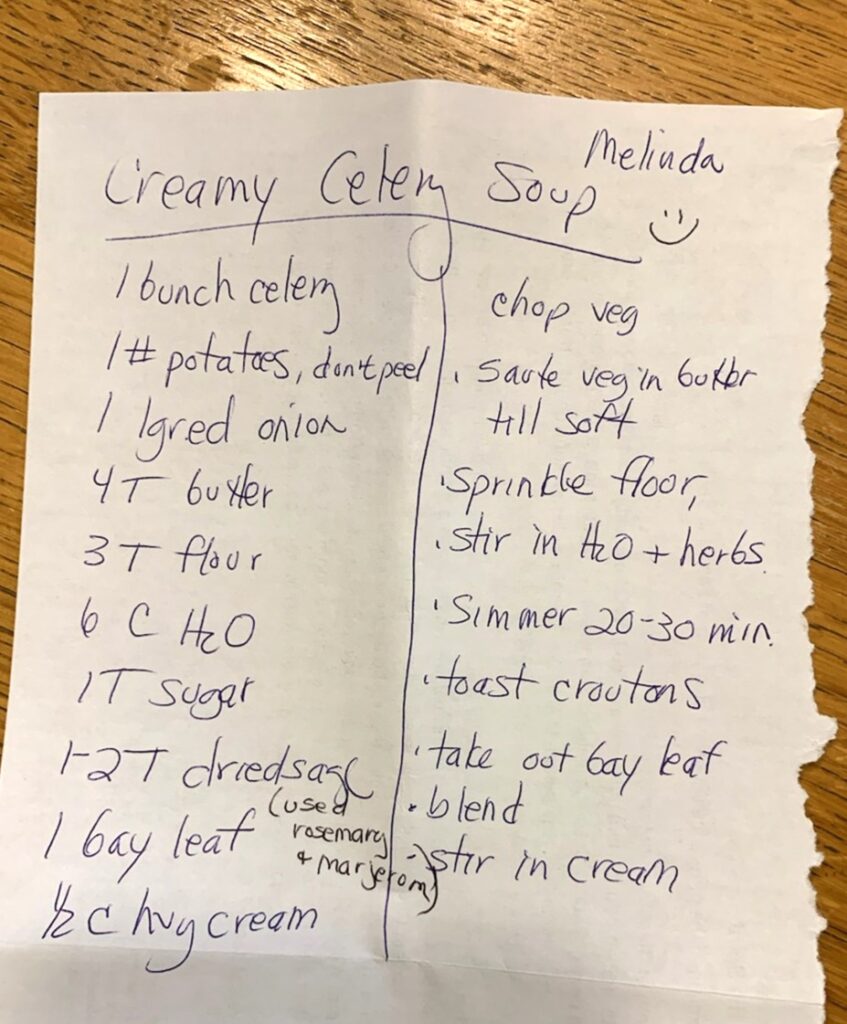 Melinda
Creamy Celery Soup
1 bunch celery
1 # potatoes, don't peel
1 lg red onion
4 T butter
3 T flour
6 C H2O
1 T sugar
1-2 T dried sage
(used
rosemary
+ marjerom)
1 bay leaf
1/2 C hvy cream
chop veg
• Saute veg in butter
till soft
• Sprinkle floor,
• stir in H2O + herbs
• Simmer 20-30 min.
• toast croutons
• take out bay leaf
• blend
• stir in cream